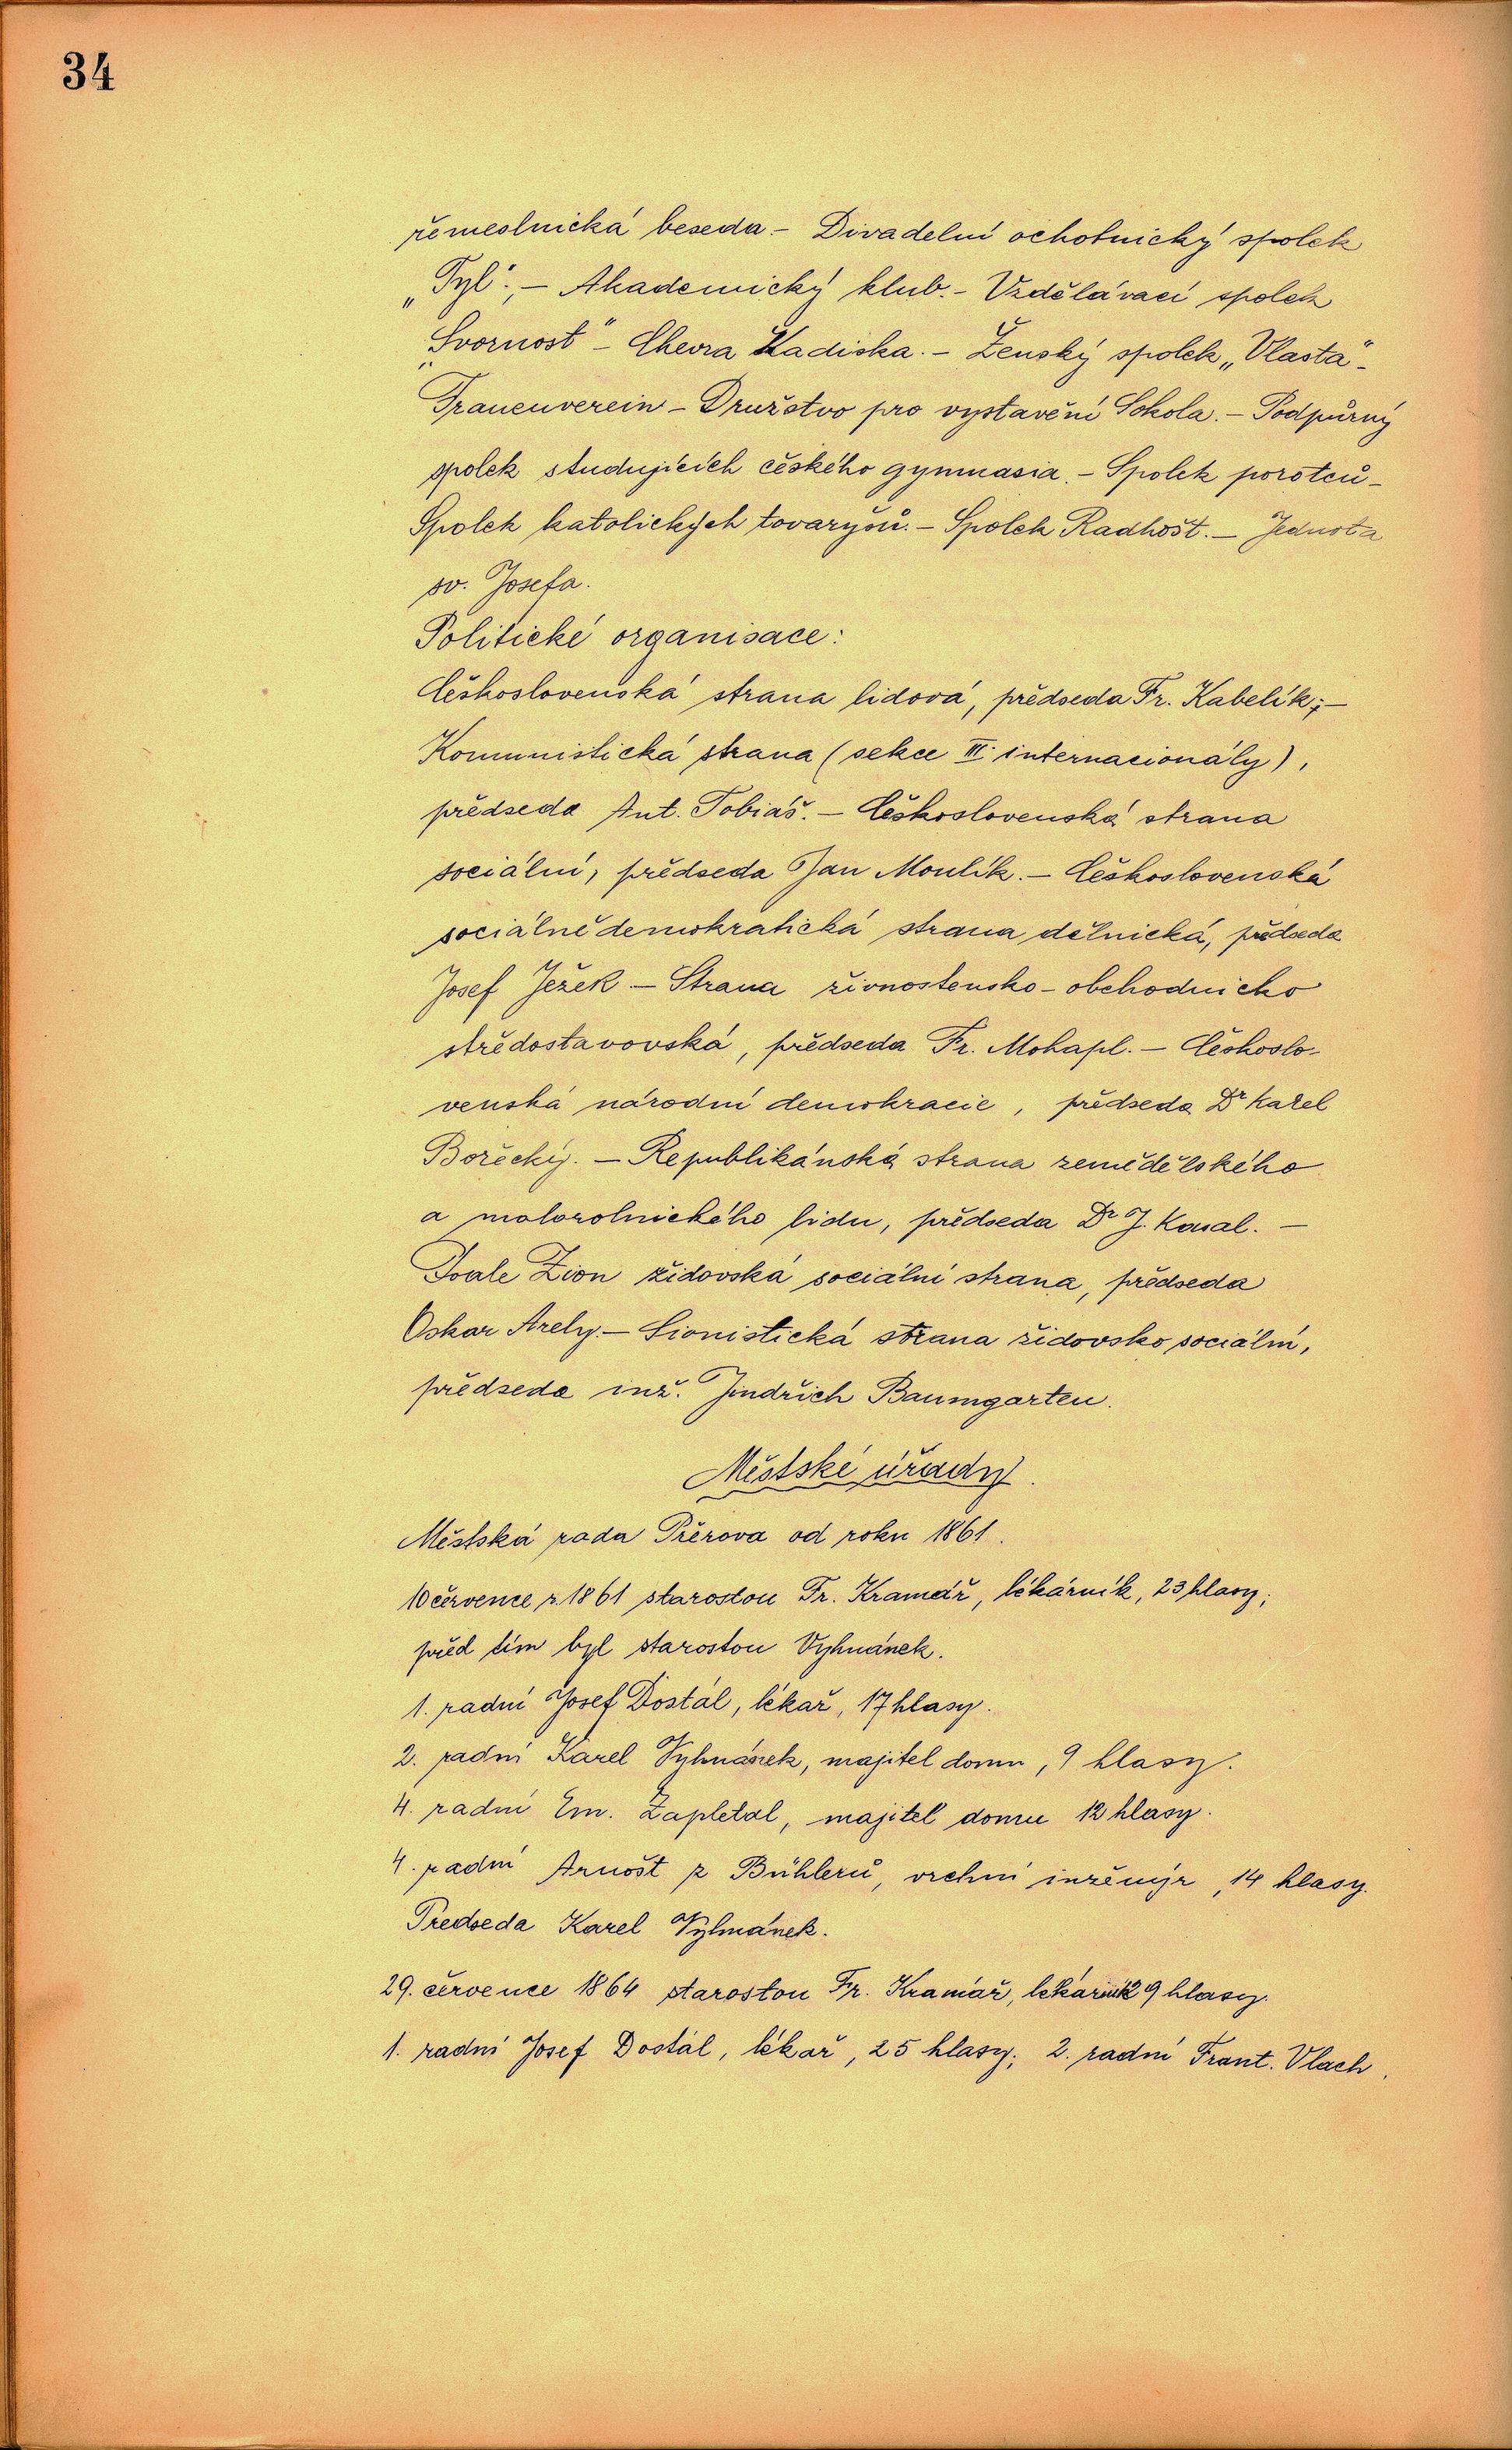 34
řemeslnická beseda. – Divadelní ochotnický spolek
„Tyl“; – Akademický klub. – Vzdělávací spolek
„Svornost“ – Chevra Kadiska. – Ženský spolek „Vlasta“ –
Frauenverein – Družstvo pro vystavění Sokola. – Podpůrný
spolek studujících českého gymnasia. – Spolek porotců –
Spolek katolických tovaryšů. – Spolek Radhošť. – Jednota
sv. Josefa.
Politické organisace:
Československá strana lidová, předseda Fr. Kabelík; –
Komunistická strana (sekce III. internacionály),
předseda Ant. Tobiáš. – Československá strana
sociální, předseda Jan Moulík. – Československá
sociálně demokratická strana dělnická, předseda
Josef Ježek – Strana živnostensko-obchodnicko
středostavovská, předseda Fr. Mohapl. – Českoslo-
venská národní demokracie, předseda Dr Karel
Bořecký. – Republikánská strana zemědělského
a malorolnického lidu, předseda Dr J. –
Poale Zion židovská sociální strana, předseda
Oskar Arely. – Sionistická strana židovsko sociální,
předseda inž. Jindřich Baumgarten.
Městské úřady.
Městská rada Přerova od roku 1861.
10 července r. 1861 starostou Fr. Kramář, lékárník, 23 hlasy;
před tím byl starostou Vyhnánek.
1. radní Josef Dostál, lékař, 17 hlasy.
2. radní Karel Vyhnánek, majitel domu, 9 hlasy.
4. radní Em. Zapletal, majitel domu 12 hlasy.
4. radní Arnošt z Bühlerů, vrchní inženýr, 14 hlasy.
Predseda Karel Vyhnánek.
29. července 1864 starostou Fr. Kramář, lékárník 29 hlasy.
1. radní Josef Dostál, lékař, 25 hlasy; 2. radní Frant. Vlach,